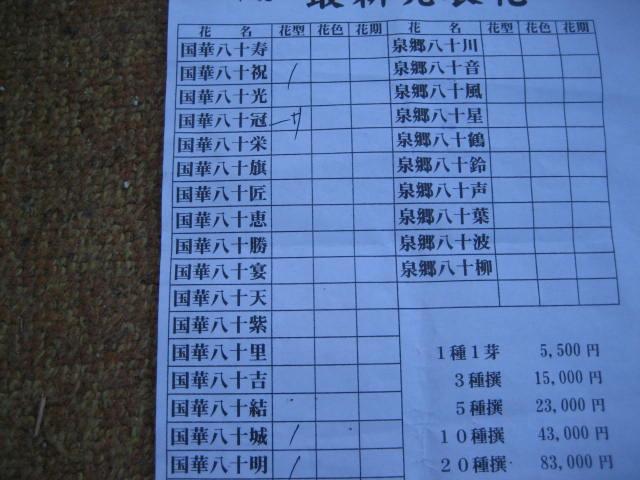 最新発表花
花名 花型 花色 花期 花名 花型 花色 花期
国華八十寿 泉郷八十川
国華八十祝 / 泉郷八十音
国華八十光 泉郷八十風
国華八十冠 泉郷八十星
国華八十栄 泉郷八十鶴
国華八十旗 泉郷八十鈴
国華八十匠 泉郷八十声
国華八十恵 泉郷八十葉
国華八十勝 泉郷八十波
国華八十宴 泉郷八十柳
国華八十天
国華八十紫
国華八十里 1種1芽 5,500円
国華八十吉 3種撰 15,000円
国華八十結 5種撰 23,000円
国華八十城 / 10種撰 43,000円
国華八十明 / 20種撰 83,000円